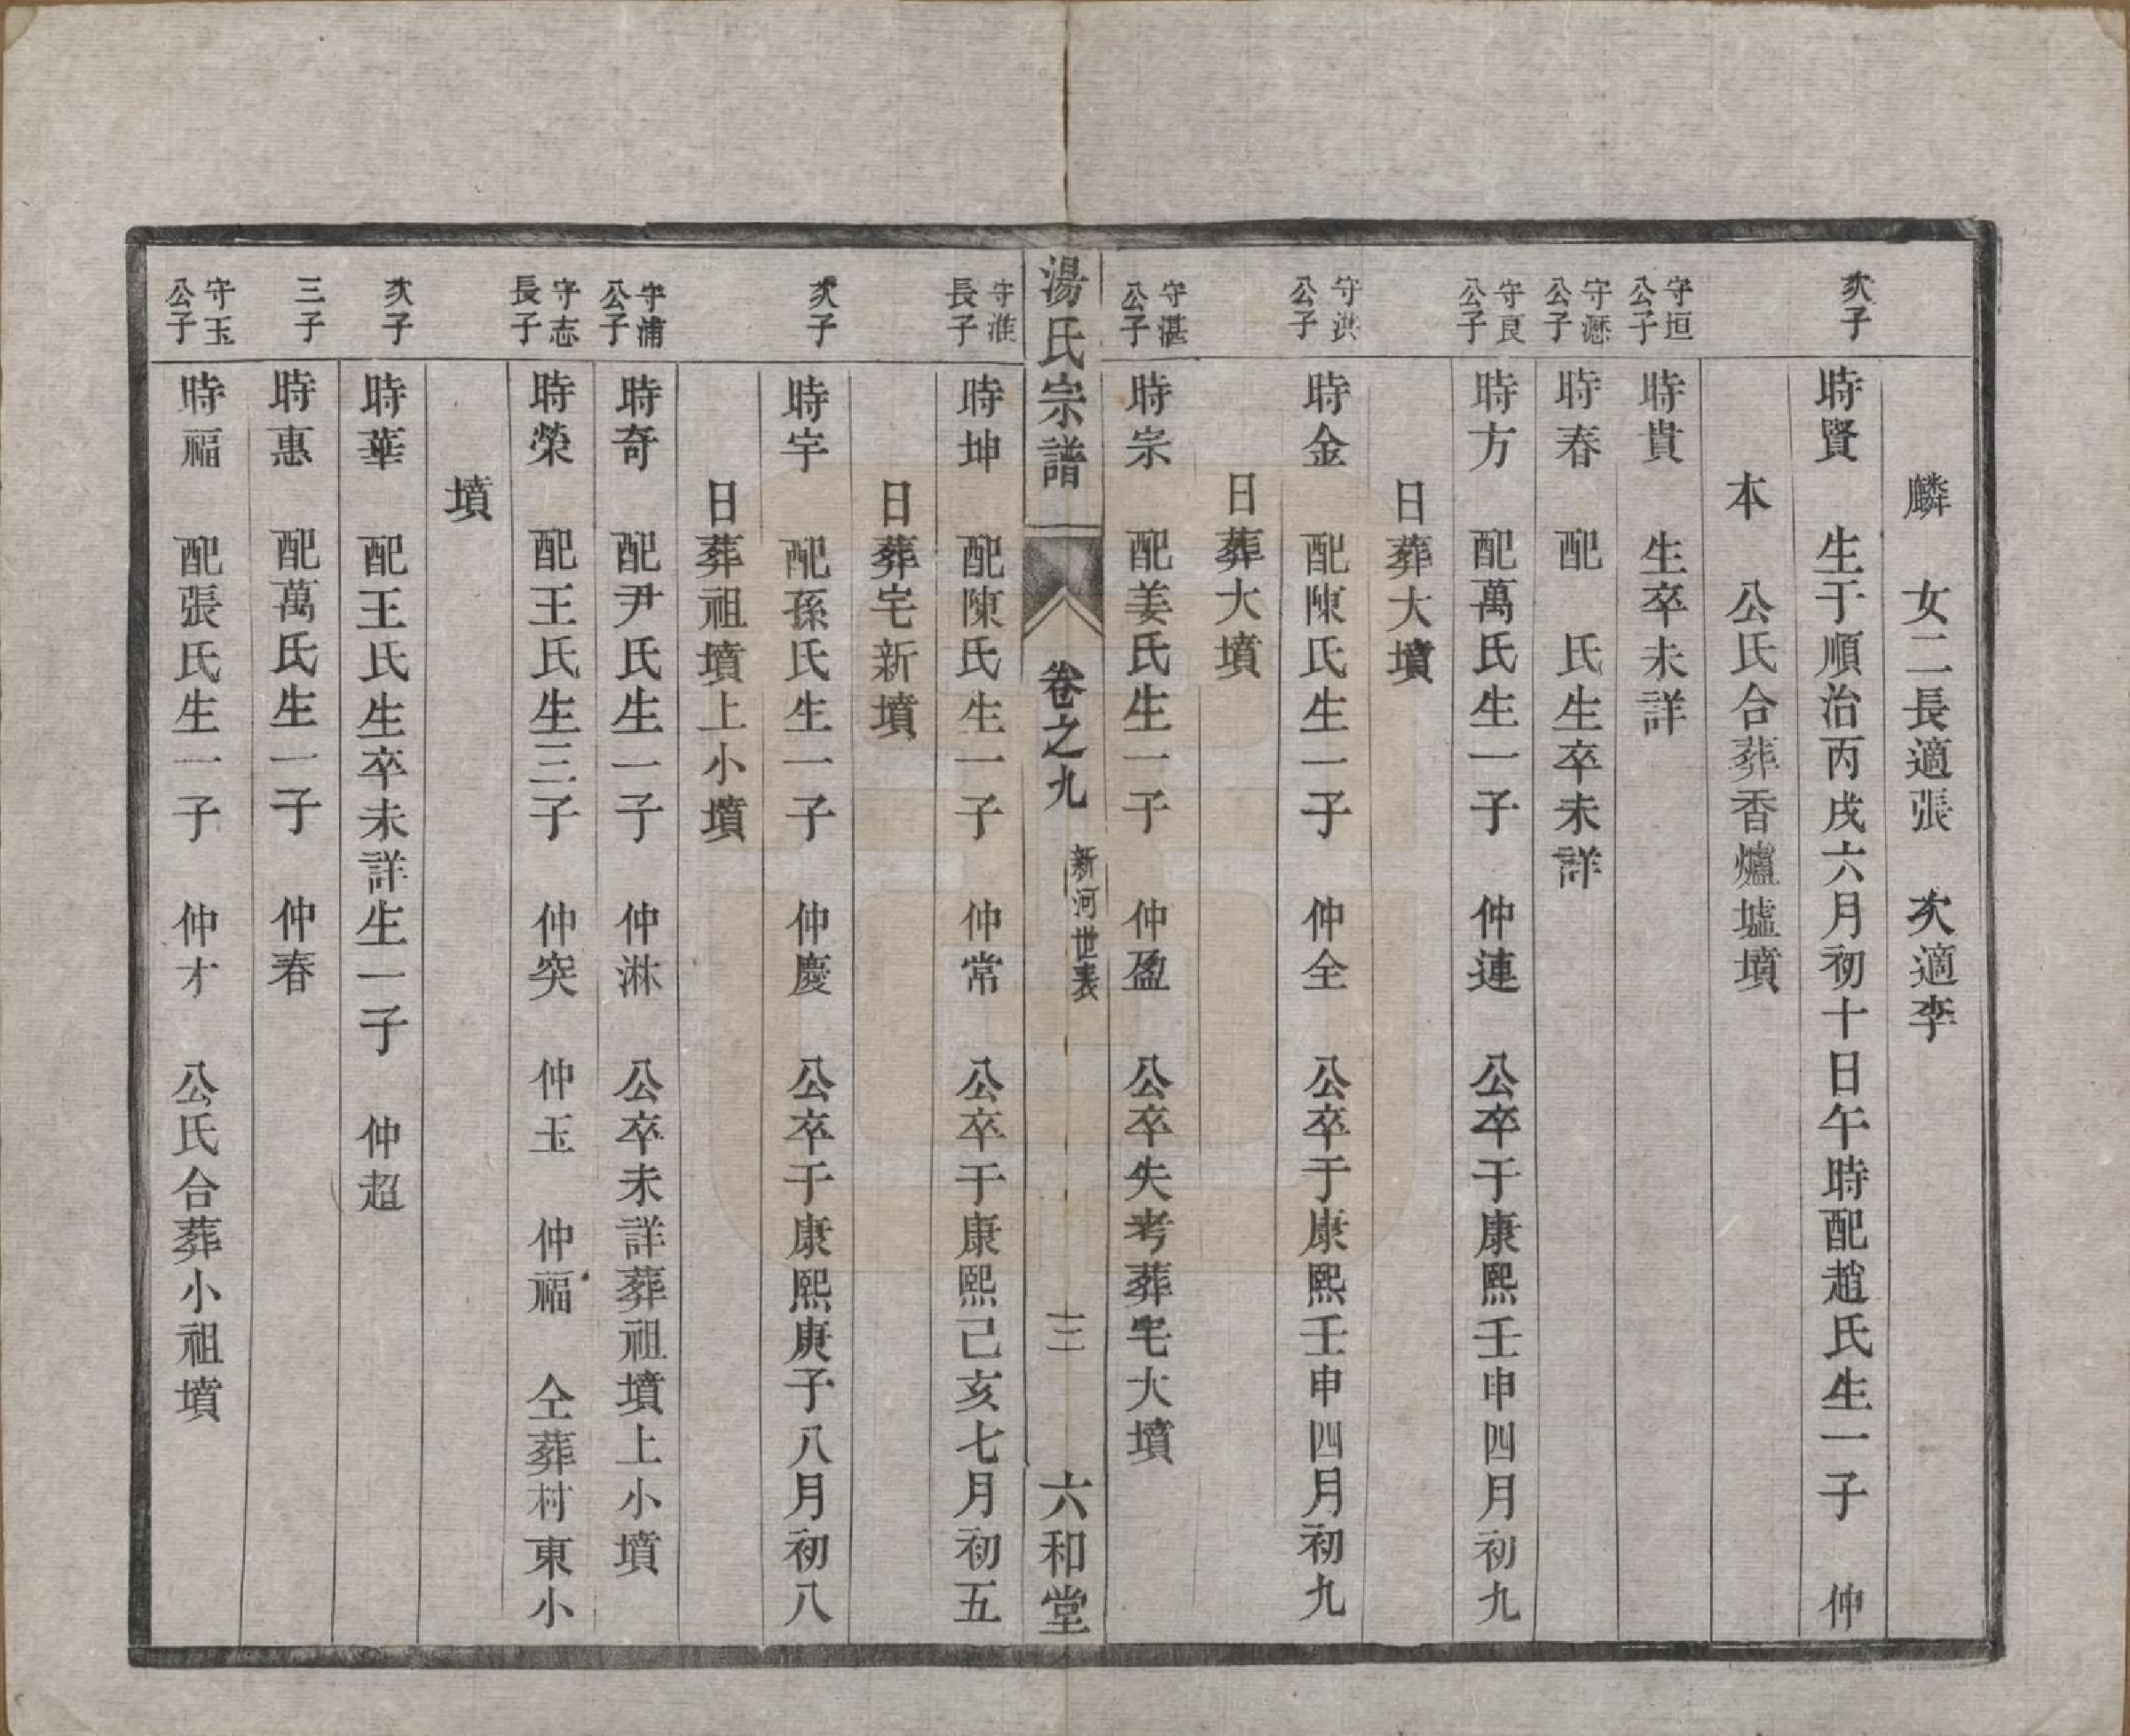 麟　女二長適張　次適李
次子
時賢　生于順治丙戌六月初十日午時配趙氏生一子　仲
本　公氏合葬香爐墟墳
守垣公子
時貴　生卒未詳
守懸公子
時春　配　氏生卒未詳
守良公子
時方　配萬氏生一子　仲連　公卒于康熙壬申四月初九
日葬大墳
守洪公子
時金　配陳氏生一子　仲全　公卒于康熙壬申四月初九
日葬大墳
守湛公子
時宗　配姜氏生一子　仲盈　公卒失考葬宅大墳
湯氏宗譜　卷之九　新河世表　三　六和堂
守淮長子
時坤　配陳氏生一子　仲常　公卒于康熙己亥七月初五
日葬宅新墳
次子
時宇　配孫氏生一子　仲慶　公卒于康熙庚子八月初八
日葬祖墳上小墳
守浦公子
時奇　配尹氏生一子　仲淋　公卒未詳葬祖墳上小墳
守志長子
時榮　配王氏生三子　仲突　仲玉　仲福　仝葬村東小
墳
次子
時華　配王氏生卒未詳生一子　仲超
三子
時惠　配萬氏生一子　仲春
守玉公子
時福　配張氏生一子　仲才　公氏合葬小祖墳